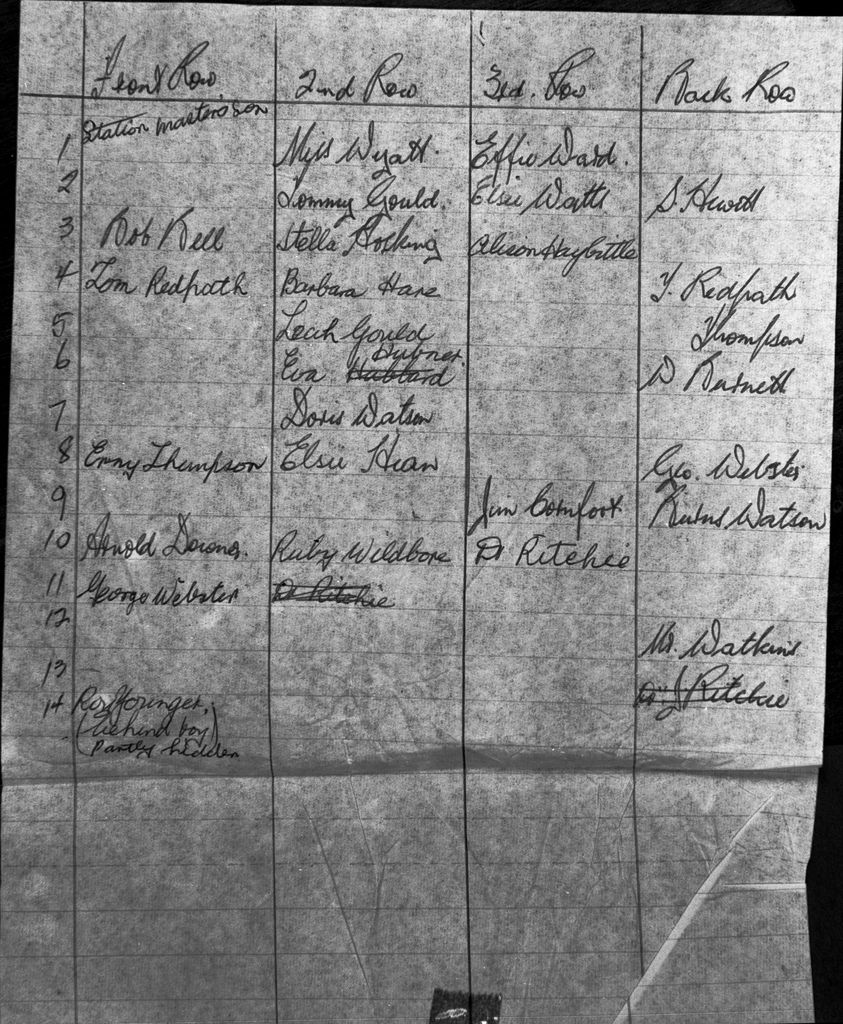 Front Row 2nd Row 3rd. Row Back Row
Station masters son
1 Miss Wyatt. Effie Ward.
2 Tommy Gould. Elsie Watts S. Hewitt
3 Bob Bell Stella Hosking Alison Haybittle
4 Tom Redpath Barbara Hare Y. Redpath
5 Leah Gould Thompson
Dubner.
6 Eva Hubbard W Burnett
7 Doris Watson
8 Erny Thompson Elsie Hean Geo. Webster
9 Jim Comfort Rufus Watson
10 Arnold Downer. Ruby Wildbore Dr Ritchie
11 George Webster Dr Ritchie
12 Mr. Watkins
13 Ritchie
14 Roy Youinger,
(behind boy)
(Partly hidden